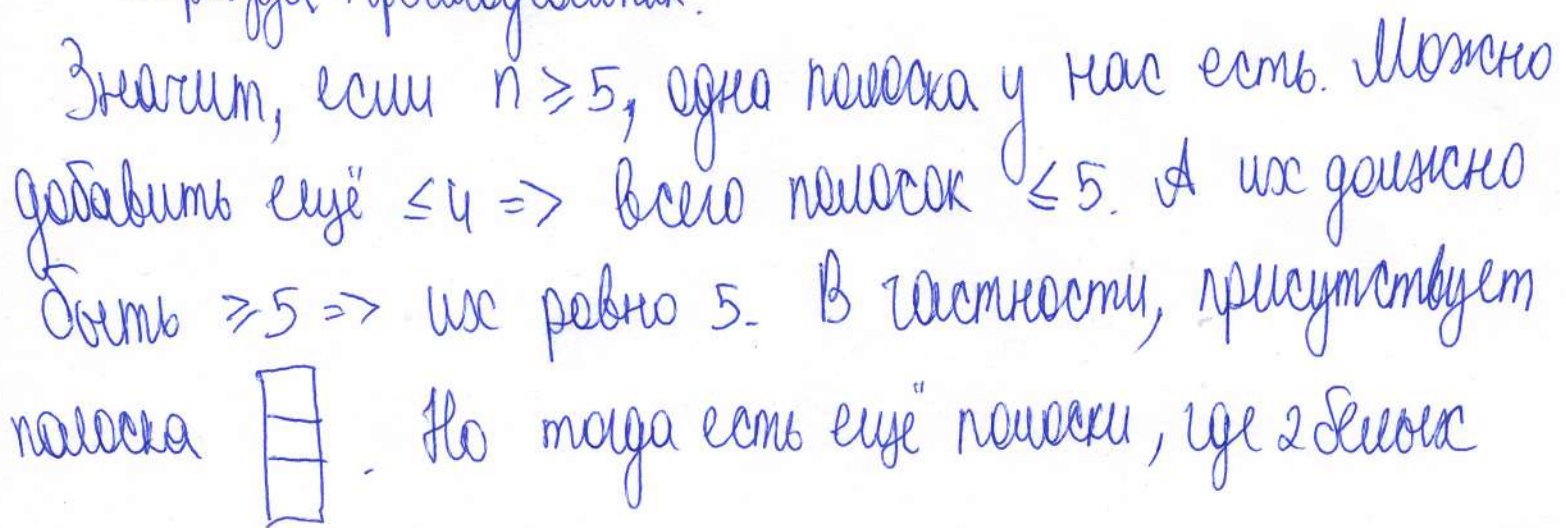 Значит, если n ≥ 5, одна полоска у нас есть. Можно
добавить ещё ≤ 4 => всего полосок ≤ 5. А их должно
быть ≥ 5 => их равно 5. В частности, присутствует
полоска . Но тогда есть ещё полоски, где 2 белых